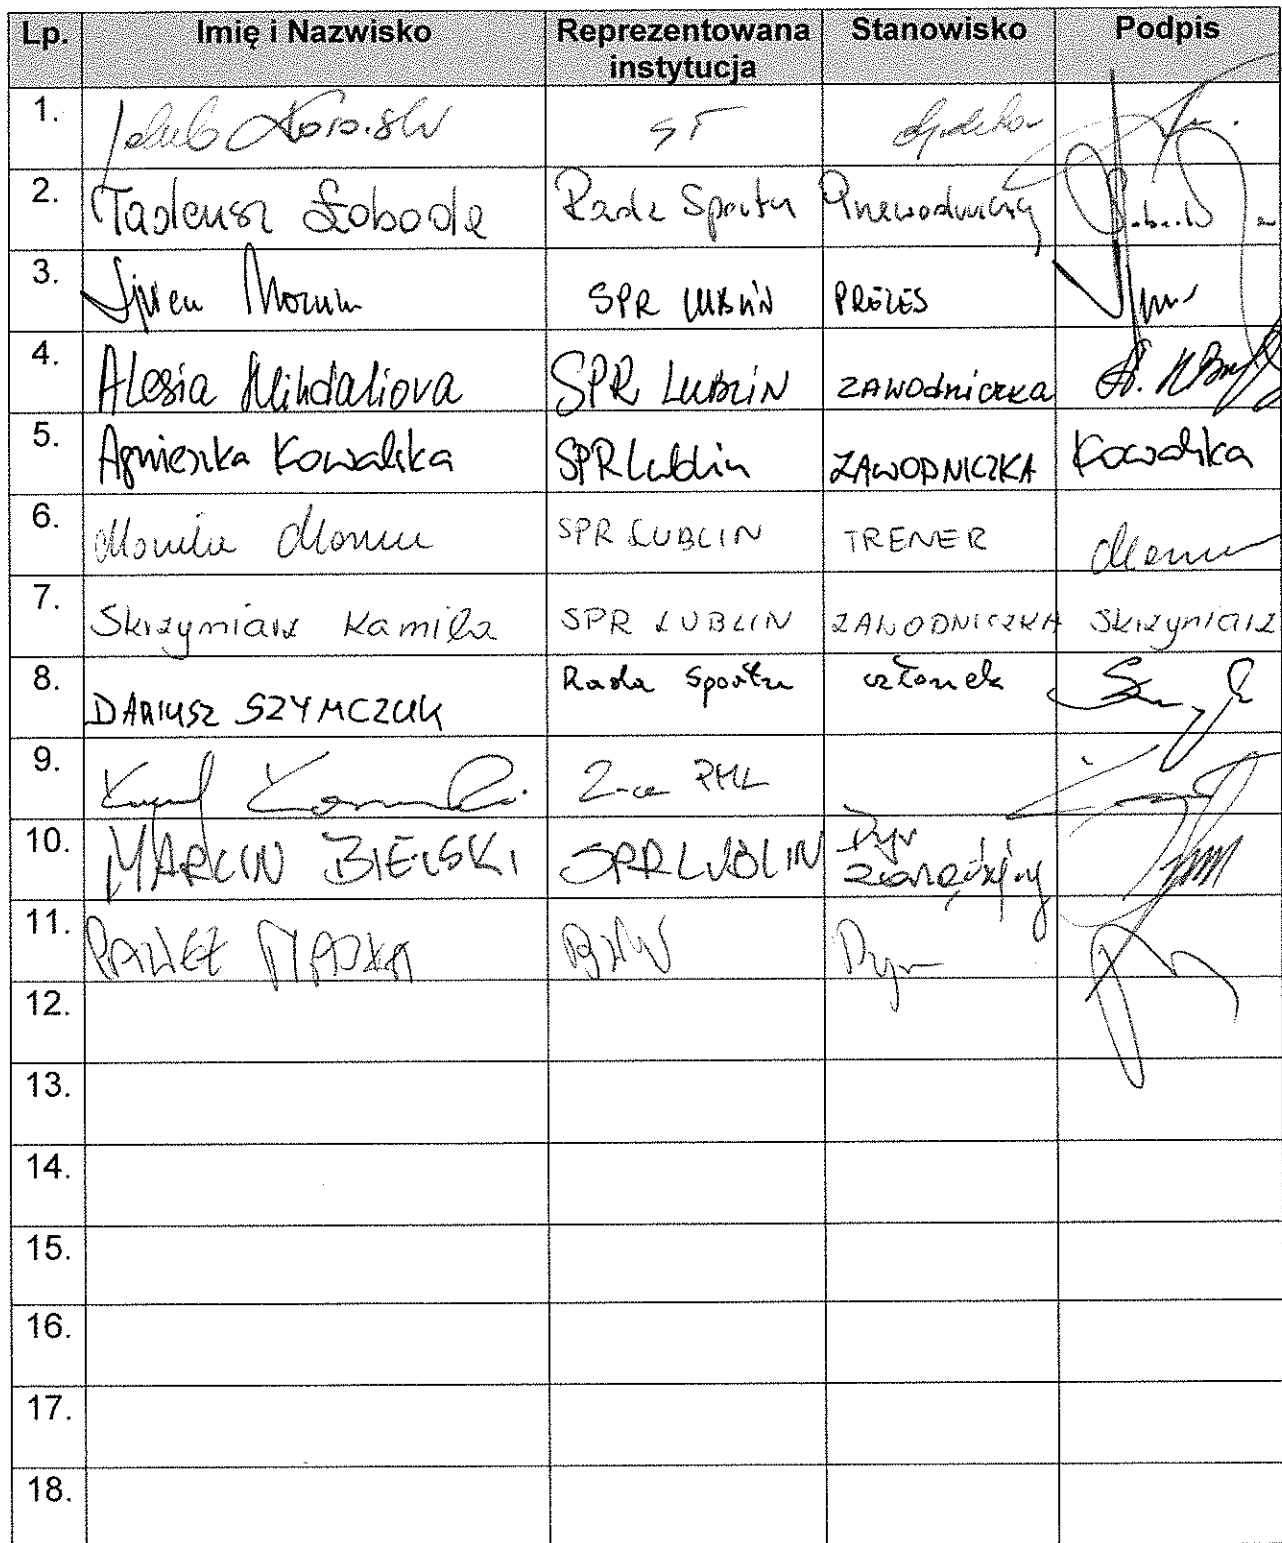 Lp. Imię i Nazwisko Reprezentowana instytucja Stanowisko Podpis
1. Jakub
2. Tadeusz Łoboda Rada Sportu Przewodniczący
3. SPR LUBLIN PREZES
4. Alesia Mihdaliova SPR LUBLIN ZAWODNICZKA
5. Agnieszka Kowalska SPR Lublin ZAWODNICZKA Kowalska
6. Monika SPR LUBLIN TRENER
7. Skrzyniarz Kamila SPR LUBLIN ZAWODNICZKA Skrzyniarz
8. DARIUSZ SZYMCZUK Rada Sportu członek
9. Z-ca PML
10. MARCIN BIELSKI SPR LUBLIN Dyr Zarządzający
11. PAWEŁ Dyr
12.
13.
14.
15.
16.
17.
18.